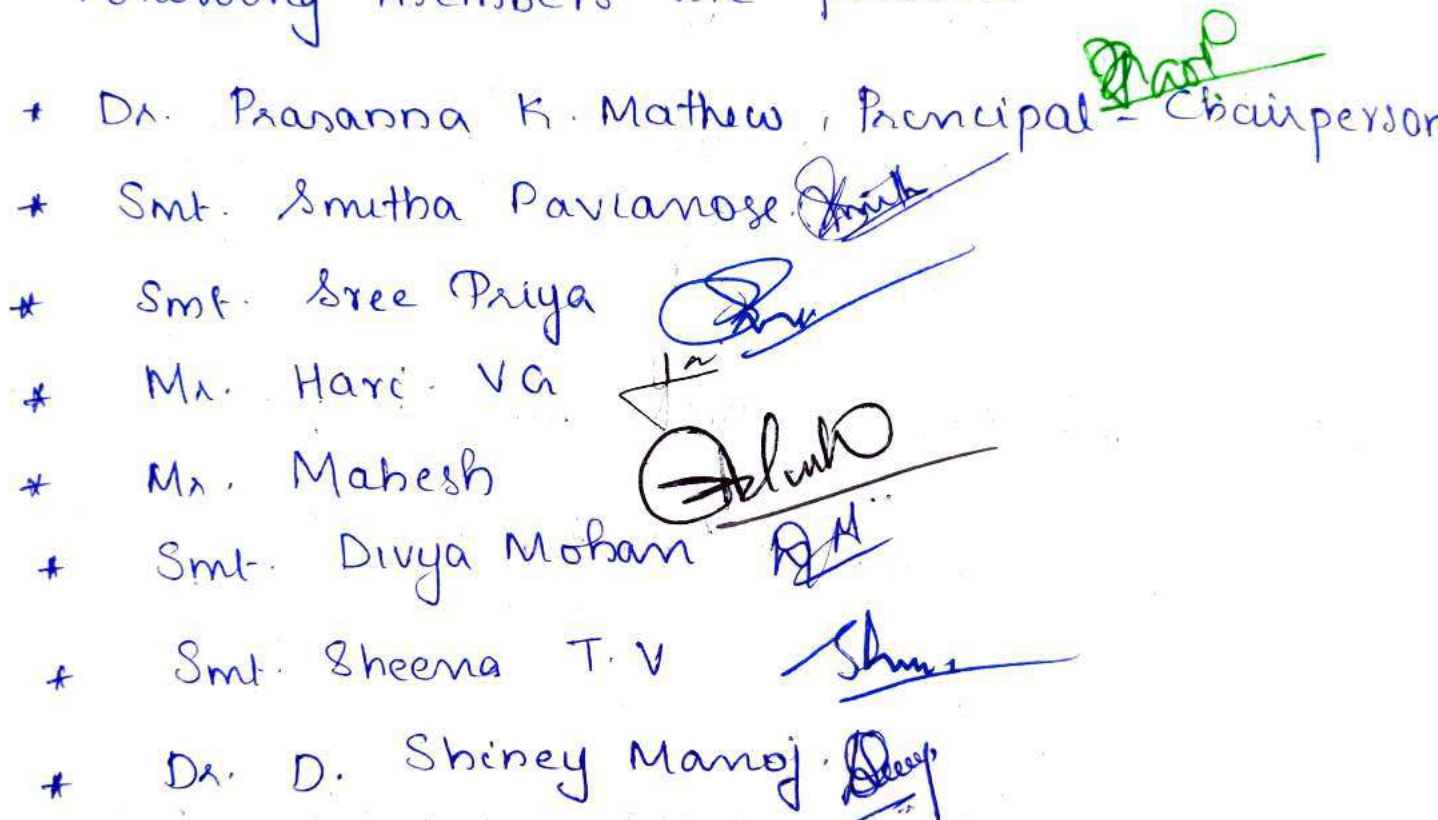 Following members are present
* Dr. Prasanna K. Mathew, Principal - Chairperson
* Smt. Smitha Pavianose.
* Smt. Sree Priya
* Mr. Hari. VG
* Mr. Mahesh
* Smt. Divya Mohan
* Smt. Sheena T.V
* Dr. D. Shiney Manoj.